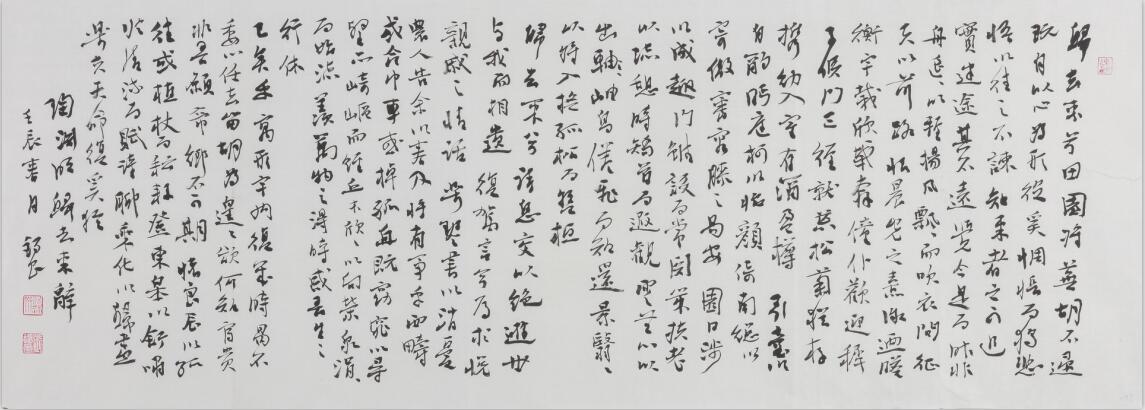 歸去來兮田園將蕪胡不歸
既自以心為形役奚惆悵而獨悲
悟以往之不諫知來者之可追
實迷途其未遠覺今是而昨非
舟遙々以輕揚風飄而吹衣問征
夫以前路恨晨光之熹微迺瞻
衡宇載欣載奔僮仆歡迎稚
子候門三徑就荒松菊猶存
攜幼入室有酒盈樽 引壺以
自酌眄庭柯以怡顏倚南窗以
寄傲審容膝之易安 園日涉
以成趣門雖設而常關策扶老
以流憩時矯首而遐觀雲無心以
出岫鳥倦飛而知還景翳々
以將入撫孤松而盤桓
歸去來兮請息交以絕遊世
與我而相遺 復駕言兮焉求悅
親戚之情話樂琴書以消憂
農人告余以春及將有事乎西疇
或命巾車或棹孤舟既窈窕以尋
壑亦崎嶇而經丘木欣々以向榮泉涓
而始流羨萬物之得時感吾生之
行休
已矣乎寓形宇內復幾時曷不
委心任去留胡為遑々欲何之富貴
非吾願帝鄉不可期懷良辰以孤
往或植杖而耘耔登東皋以舒嘯
臨清流而賦詩聊乘化以歸盡
樂夫天命復奚疑
陶淵明歸去來辭
壬辰春月